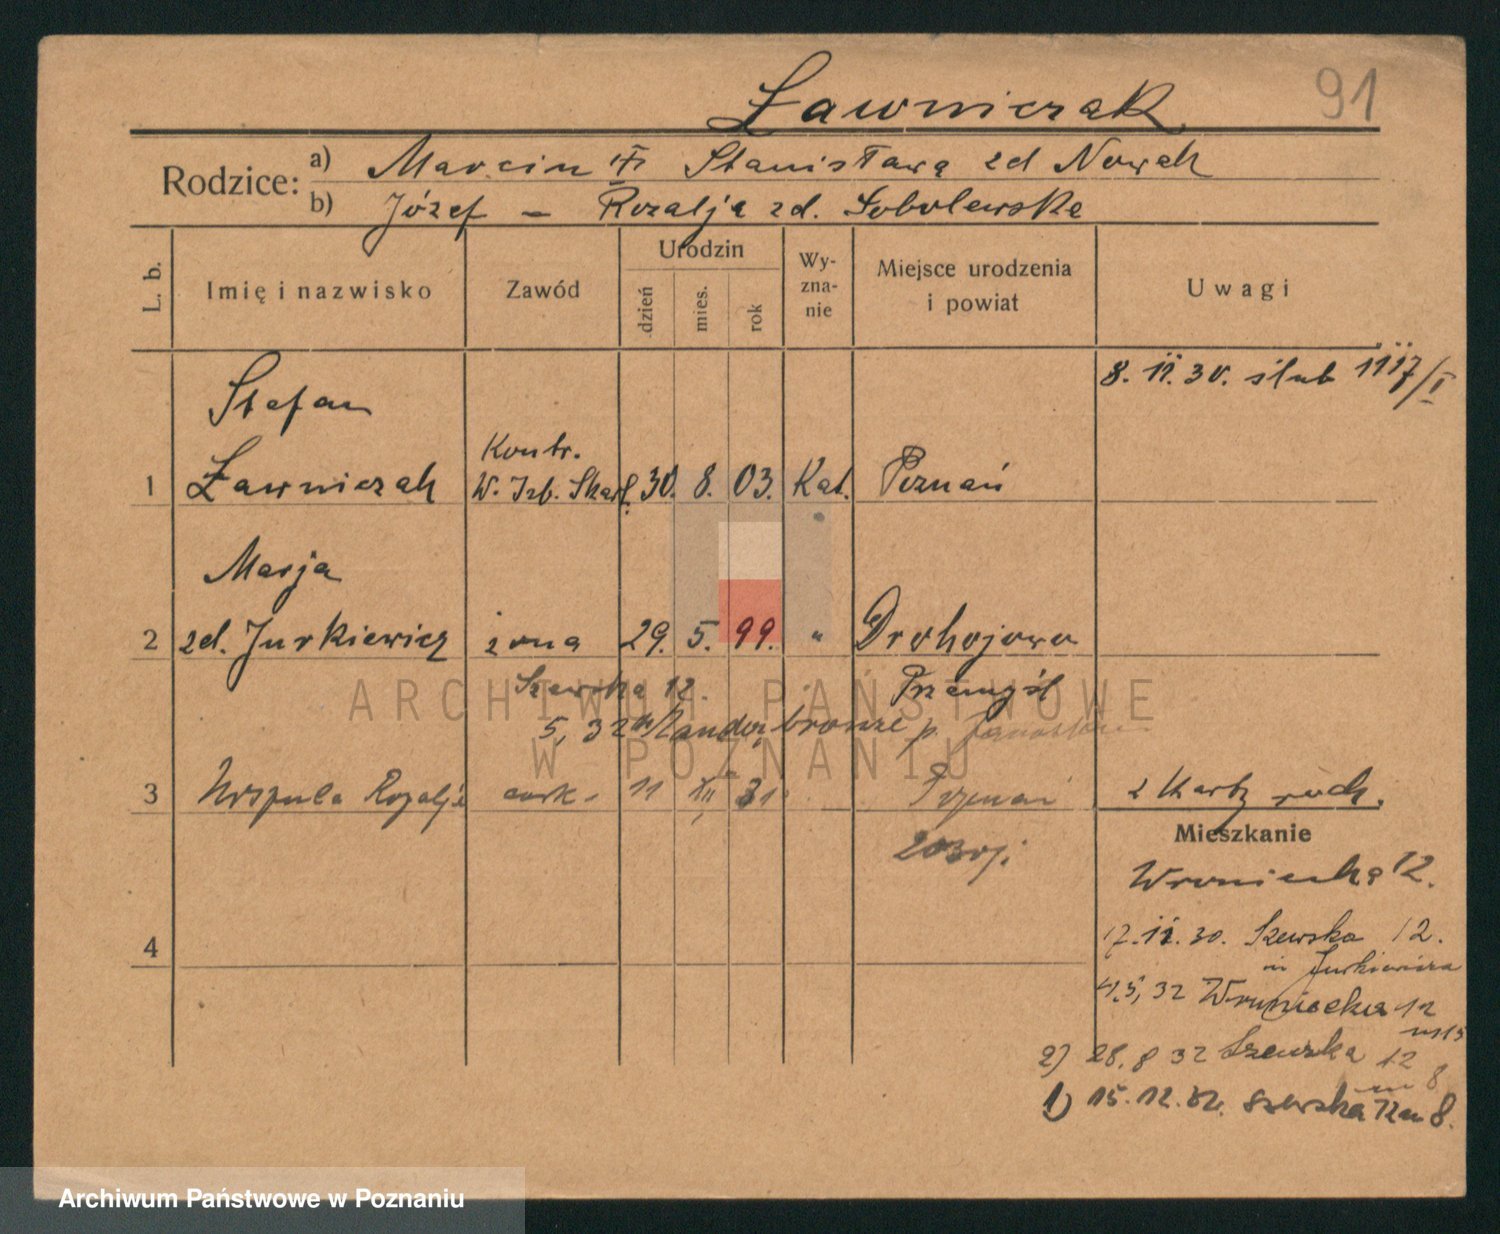 Ławniczak
91
Rodzice:
a) Marcin i Stanisława zd Nowak
b) Józef – Rozalja zd. Sobolewska
L. b.
Imię i nazwisko
Zawód
Urodzin
dzień
mies.
rok
Wy-
zna-
nie
Miejsce urodzenia
i powiat
Uwagi
8. 11. 30. ślub
Stefan
Kontr.
1 Ławniczak W. Izb. Skarb. 30. 8. 03. Kat. Poznań
Marja
2 zd. Jurkiewicz żona 29. 5. 99. " Drohojowo
Szewska 12. Przemyśl
5, 32
3 Urszula Rozalja córk- 11 XII 31 Poznań
z karty ruch.
Mieszkanie
Wroniecka 12.
4
17. 11. 30. Szewska 12.
m Jurkiewicza
4.5, 32 Wroniecka 12
m 15
2) 28. 8 32 Szewska 12
m 8
1) 15. 12. 32. Szewska 12 m 8.
ARCHIWUM PAŃSTWOWE
W POZNANIU
Archiwum Państwowe w Poznaniu